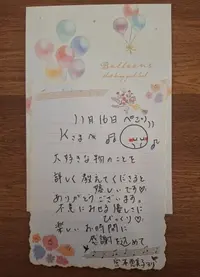 Balloons
11月16日
Kさま
大好きな物のことを
詳しく教えてくださると
嬉しいです
ありがとうございます。
不意にみせる優しさに
びっくり♡
楽しいお時間に
感謝を込めて